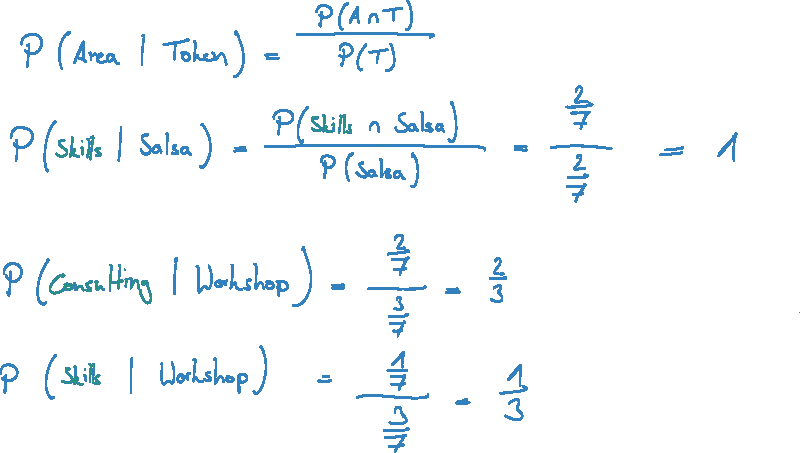 P(Area | Token) = P(A∩T) / P(T)
P(Skills | Salsa) = P(Skills ∩ Salsa) / P(Salsa) = 2/7 / 2/7 = 1
P(Consulting | Workshop) = 2/7 / 3/7 = 2/3
P(Skills | Workshop) = 1/7 / 3/7 = 1/3